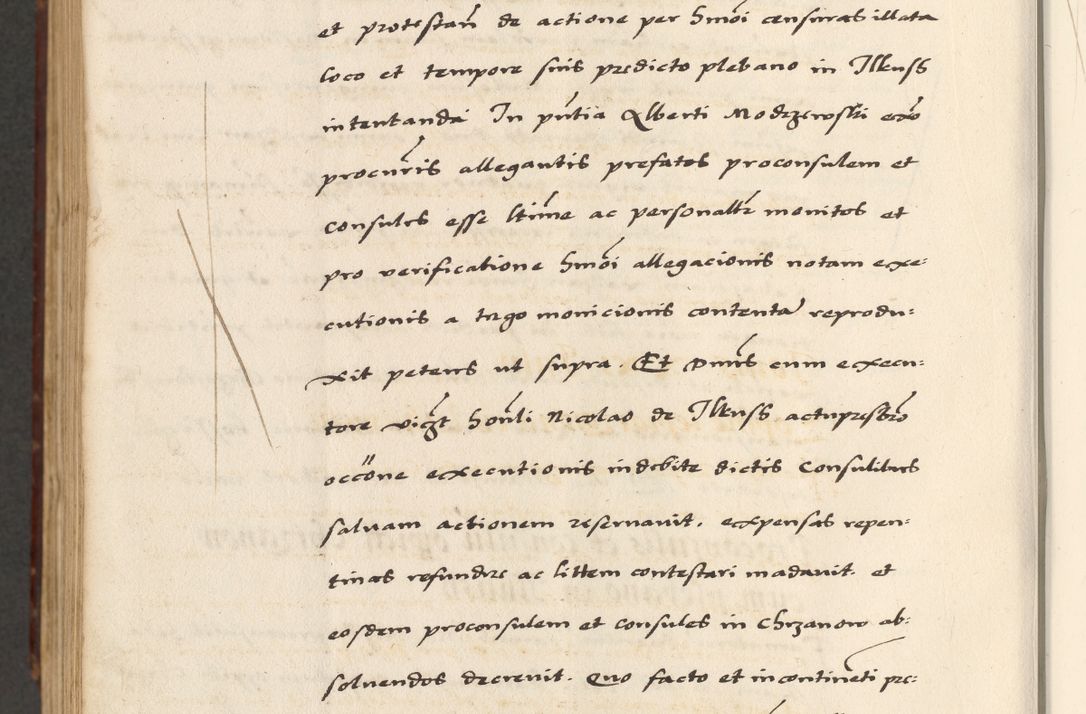 et protestan̄ de actione per hm̄oi censuras illata
loco et tempore suis predicto plebano in Ilkuss
intentanda In pn̄tia Alberti Modrzewski eōr
procurīs allegantis prefatos proconsulem et
consules esse ltīme ac personalr̄ monitos et
pro verificatione hm̄oi allegacionis notam exe:
cutionis a tergo monicionis contenta reprodu:
xit petens ut supra. Et Dn̄us cum execu:
tore vig̃t honli Nicolao de Ilkuss actu presbr̄o
occōne executionis indebite dictis Consulibus
saluam actionem reseruauit. expensas repen:
tinas refundere ac littem contestari madauit. et
eosdem proconsulem et consules in Chrzanow ab:
soluendos decreuit. Quo facto et in contineti pre: